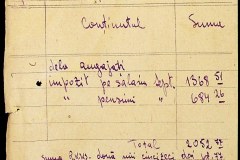 Conținutul Suma
dela angajați
impozit pe salarii Sept. 1368 51
" " pensiuni " 684 26
Total 2052 77
suma de două mii cincizeci doi